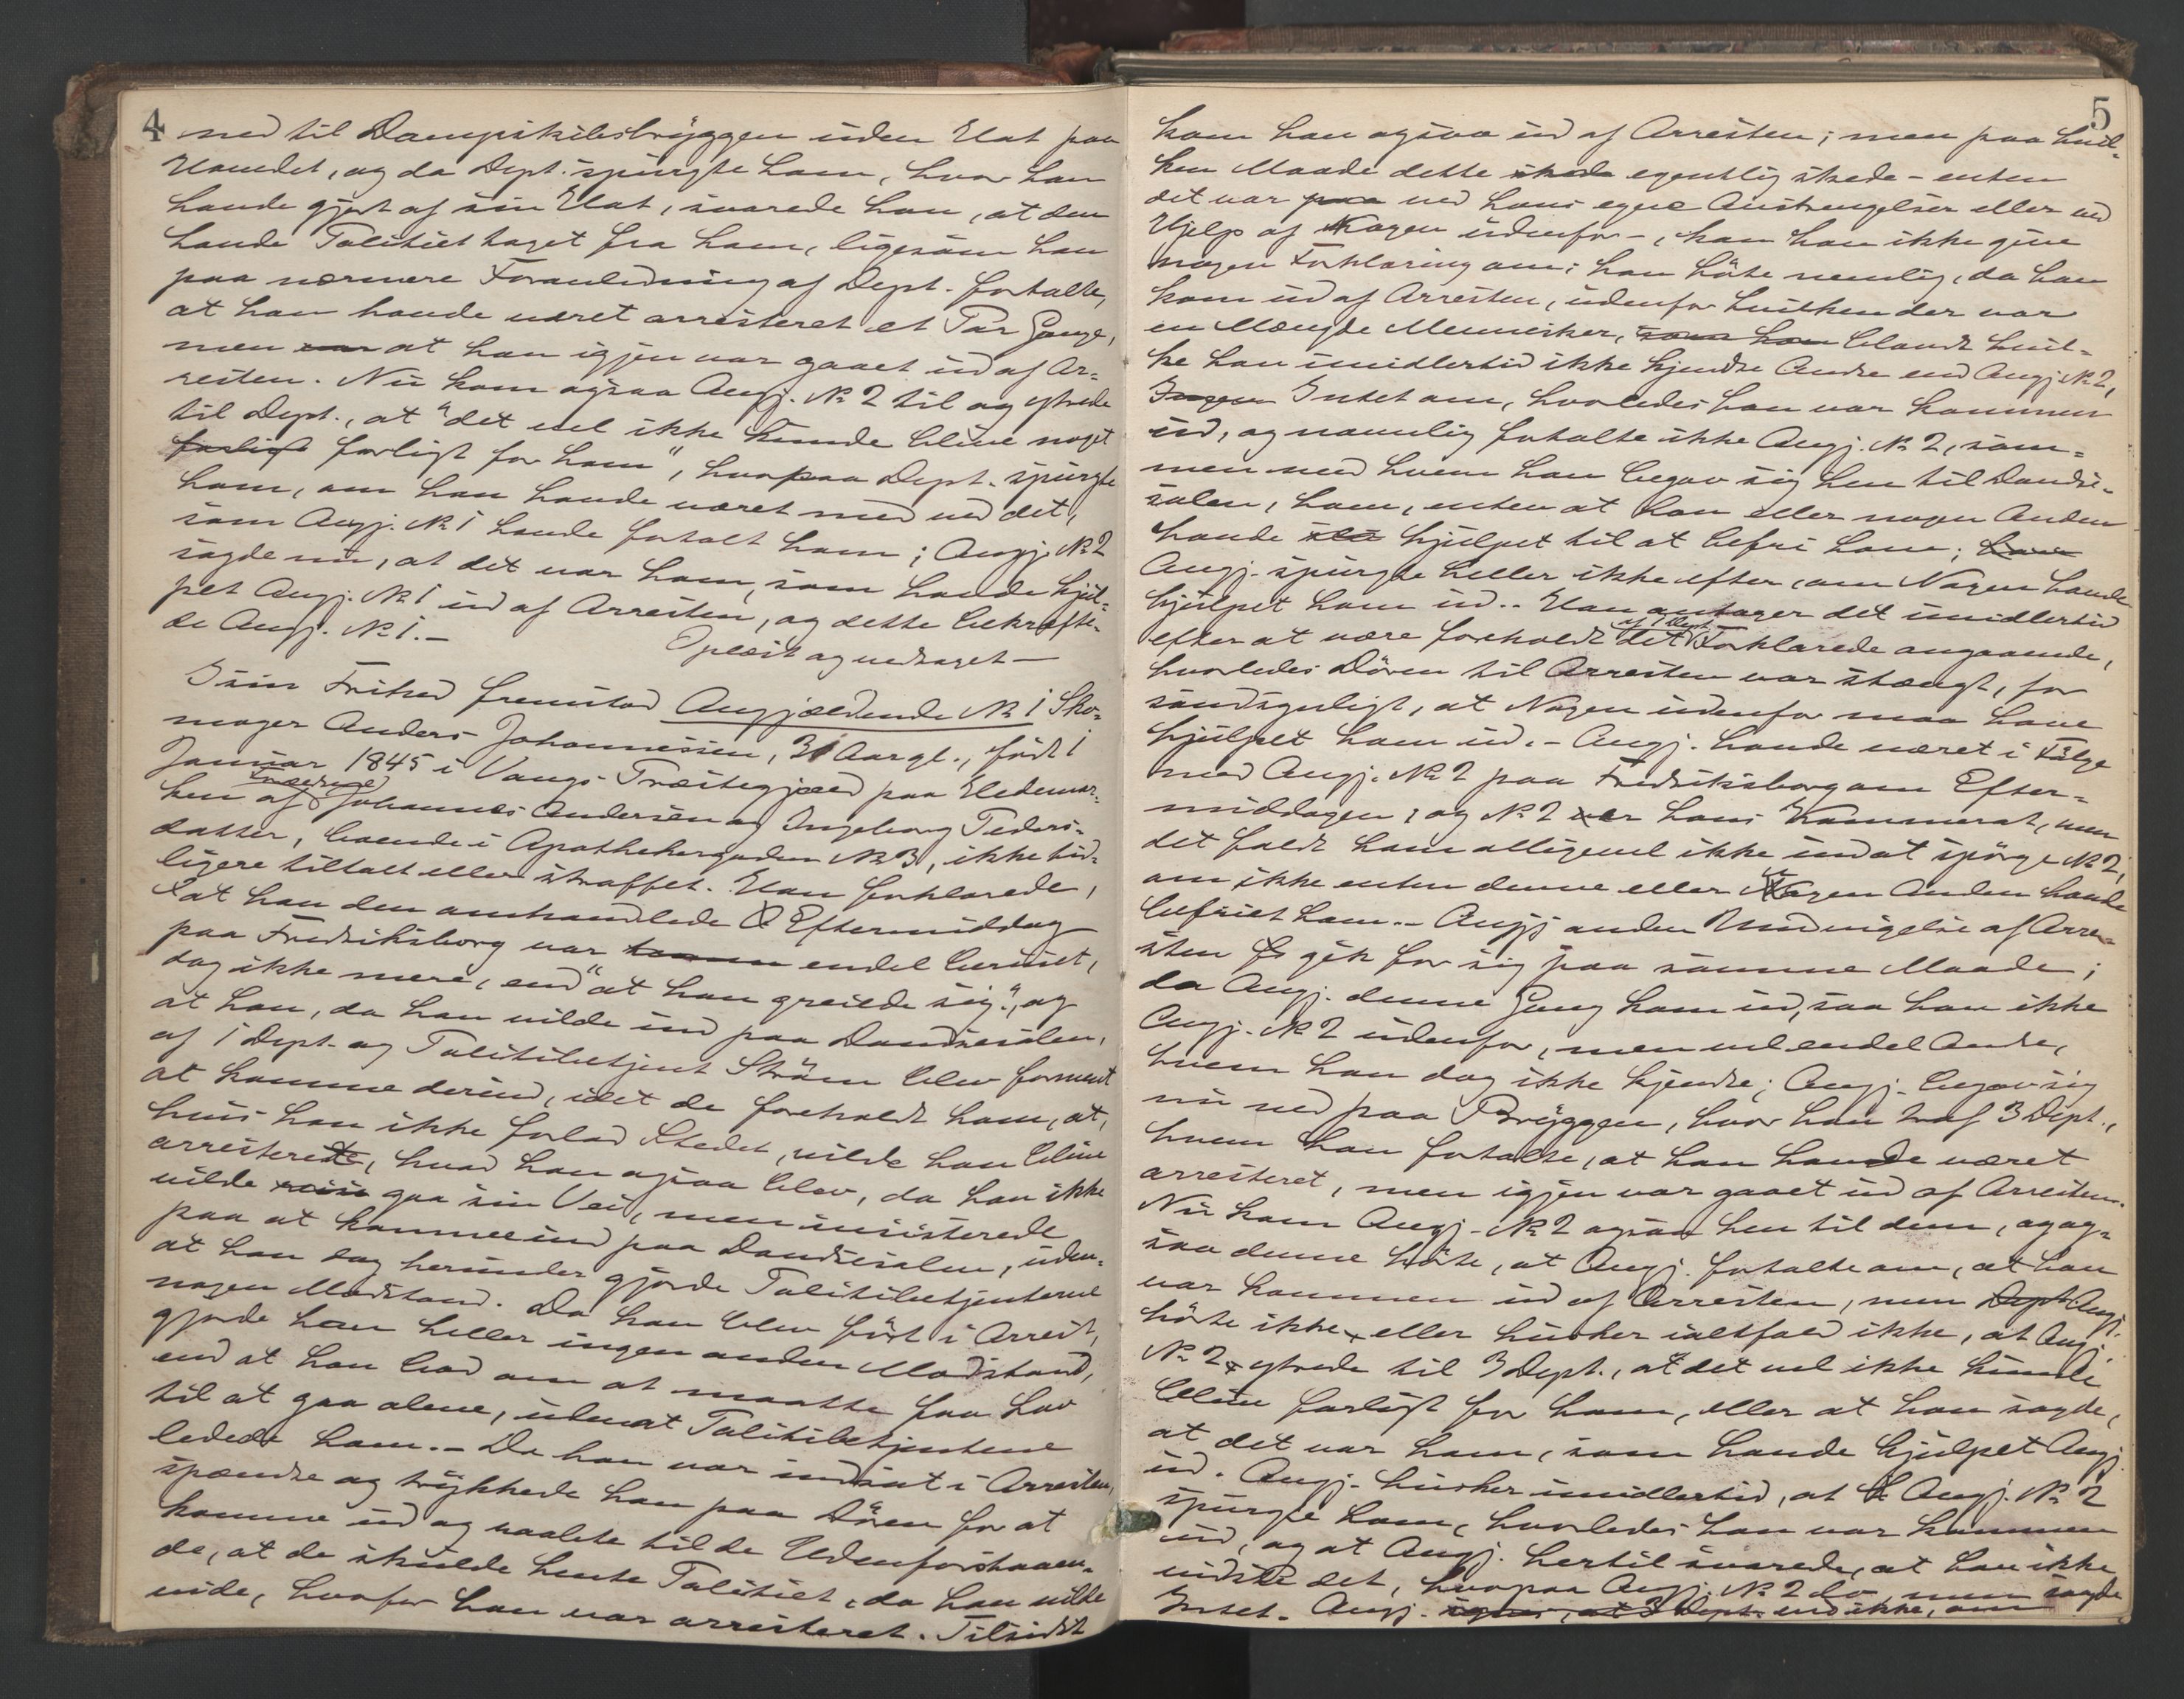 4
ned til Dampskibsbryggen uden Hat paa
Hovedet, og da Dept. spurgte ham, hvor han
havde gjort af sin Hat, svarede han, at den
havde Politiet taget fra ham, ligesom han
paa nærmere Foranledning af Dept. fortalte,
at han havde været arresteret et Par Gange,
men var at han igjen var gaaet ud af Ar-
resten. Nu kom ogsaa Angj. No 2 til og ytrede
til Dept., at "det vel ikke kunde blive noget
farligt farligt for ham", hvorpaa Dept. spurgte
ham, om han havde været med ved det,
som Angj. No 1 havde fortalt ham; Angj. No 2
sagde nu, at det var ham, som havde hjul-
pet Angj. No 1 ud af Arresten, og dette bekræfte-
de Angj. No 1. —
Oplæst og vedtaget —
I sin Frihed fremstod Angjældende No 1 Sko-
mager Anders Johannessen, 31 Aar gl., født 1
Januar 1845 i Vangs Præstegjæld paa Hedemar-
ken af Johannes Andersen og Ingeborg Peders-
datter, boende i Apothekergaden No 3, ikke tid-
ligere tiltalt eller straffet. Han forklarede,
at han den omhandlede Eftermiddag
paa Fredriksborg var endel beruset,
dog ikke mere, end "at han greiede sig", og
at han, da han vilde ind paa Dandsesalen,
af 1 Dept. og Politibetjent Strøm blev forment
at komme derind, idet de foreholdt ham, at,
hvis han ikke forlod Stedet, vilde han blive
arresteret, hvad han ogsaa blev, da han ikke
vilde gaa sin Vei, men insisterede
paa at komme ind paa Dandsesalen, uden
at han dog herunder gjorde Politibetjentene
nogen Modstand. Da han blev ført i Arrest,
gjorde han heller ingen anden Modstand,
end at han bad om at maatte faa Lov
til at gaa alene, uden at Politibetjentene
ledede ham. — Da han var indsat i Arresten,
spændte og trykkede han paa Døren for at
komme ud og raabte til de Udenforstaaen-
de, at de skulde hente Politiet, da han vilde
vide, hvorfor han var arresteret. Tilsidst
5
kom han ogsaa ud af Arresten; men paa hvil-
ken Maade dette skede egentlig skede – enten
det var paa ved hans egne Anstrengelser eller ved
Hjelp af Nogen udenfor –, kan han ikke give
nogen Forklaring om; han hørte nemlig, da han
kom ud af Arresten, udenfor hvilken der var
en Mængde Mennesker, som han blandt hvil-
ke han imidlertid ikke kjendte Andre end Angj. No 2,
Ingen Intet om, hvorledes han var kommen
ud, og navnlig fortalte ikke Angj. No 2, sam-
men med hvem han begav sig hen til Dandse-
salen, ham, enten at han eller nogen Anden
havde hjulpet til at befri ham;
Angj. spurgte heller ikke efter, om Nogen havde
hjulpet ham ud. – Han antager det imidlertid
efter at være foreholdt det af 1 Dept. Forklarede angaaende,
hvorledes Døren til Arresten var stængt, for
sandsynligt, at Nogen udenfor maa have
hjulpet ham ud. – Angj. havde været i Følge
med Angj. No 2 paa Fredriksborg om Efter-
middagen, og No 2 er hans Kammerat, men
det faldt ham alligevel ikke ind at spørge No 2,
om ikke enten denne eller Nogen Anden havde
befriet ham. – Angjs anden Undvigelse af Arre-
sten gik for sig paa samme Maade;
da Angj. denne Gang kom ud, saa han ikke
Angj. No 2 udenfor, men vel endel Andre,
hvem han dog ikke kjendte; Angj. begav sig
nu ned paa Bryggen, hvor han traf 3 Dept.,
hvem han fortalte, at han havde været
arresteret, men igjen var gaaet ud af Arresten.
Nu kom Angj. No 2 ogsaa hen til dem, og og-
saa denne hørte, at Angj. fortalte om, at han
var kommen ud af Arresten, men Dept. Angj.
hørte ikke, eller husker ialtfald ikke, at Angj.
No 2 ytrede til 3 Dept., at det vel ikke kunde
blive farligt for ham, eller at han sagde,
at det var ham, som havde hjulpet Angj.
ud. Angj. husker imidlertid, at Angj. No 2
spurgte ham, hvorledes han var kommen
ud, og at Angj. hertil svarede, at han ikke
vidste det, hvorpaa Angj. No 2 lo, men sagde
Intet. Angj. at 3 Dept. ved ikke, om